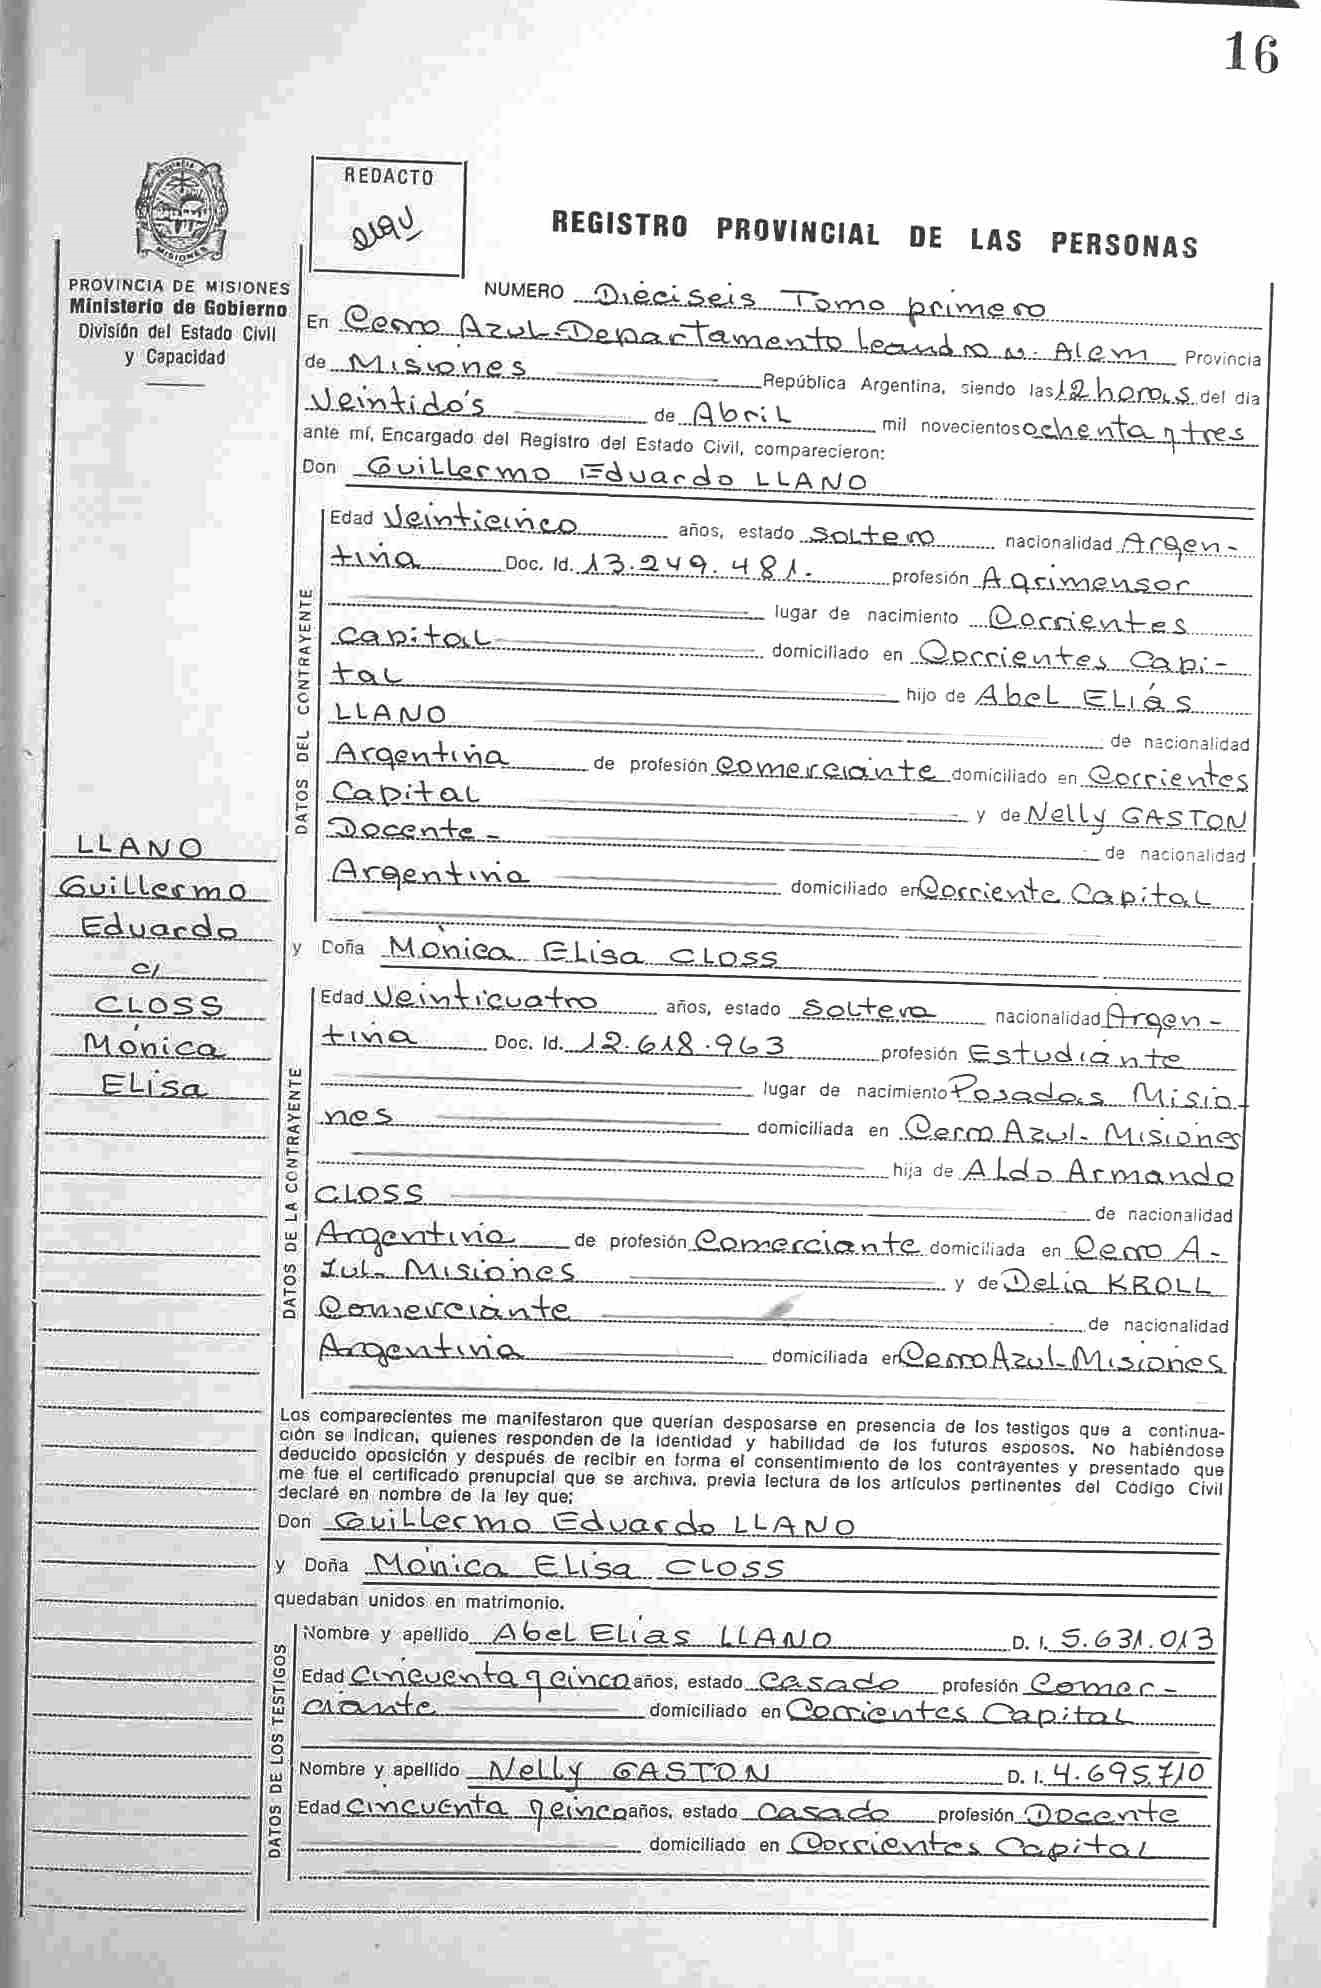 16
REDACTO
REGISTRO PROVINCIAL DE LAS PERSONAS
PROVINCIA DE MISIONES
Ministerio de Gobierno
División del Estado Civil
y Capacidad
NUMERO Dieciseis Tomo primero
En Cerro Azul-Departamento Leandro N. Alem Provincia
de Misiones República Argentina, siendo las 12 horas del día
Veintidos de Abril mil novecientos ochenta y tres
ante mí, Encargado del Registro del Estado Civil, comparecieron:
Don Guillermo Eduardo LLANO
DATOS DEL CONTRAYENTE
Edad Veinticinco años, estado Soltero nacionalidad Argen-
tina Doc. Id. 13.249.481.- profesión Agrimensor
lugar de nacimiento Corrientes
Capital domiciliado en Corrientes Capi-
tal hijo de Abel Elías
LLANO de nacionalidad
Argentina de profesión Comerciante domiciliado en Corrientes
Capital y de Nelly GASTON
Docente - de nacionalidad
Argentina domiciliado en Corriente Capital
LLANO
Guillermo
Eduardo
c/
CLOSS
Mónica
Elisa
y Doña Mónica Elisa CLOSS
DATOS DE LA CONTRAYENTE
Edad Veinticuatro años, estado Soltera nacionalidad Argen-
tina Doc. Id. 12.618.963 profesión Estudiante
lugar de nacimiento Posadas Misio
nes domiciliada en Cerro Azul- Misiones
hija de Aldo Armando
CLOSS de nacionalidad
Argentina de profesión Comerciante domiciliada en Cerro A-
zul- Misiones y de Delia KROLL
Comerciante de nacionalidad
Argentina domiciliada en Cerro Azul-Misiones
Los comparecientes me manifestaron que querían desposarse en presencia de los testigos que a continua-
ción se indican, quienes responden de la identidad y habilidad de los futuros esposos. No habiéndose
deducido oposición y después de recibir en forma el consentimiento de los contrayentes y presentado que
me fue el certificado prenupcial que se archiva, previa lectura de los artículos pertinentes del Código Civil
declaré en nombre de la ley que;
Don Guillermo Eduardo LLANO
y Doña Mónica Elisa CLOSS
quedaban unidos en matrimonio.
DATOS DE LOS TESTIGOS
Nombre y apellido Abel Elías LLANO D. I. 5.631.013
Edad Cincuenta y cinco años, estado Casado profesión Comer-
ciante domiciliado en Corrientes Capital
Nombre y apellido Nelly GASTON D. I. 4.695.710
Edad Cincuenta y cinco años, estado Casado profesión Docente
domiciliado en Corrientes Capital